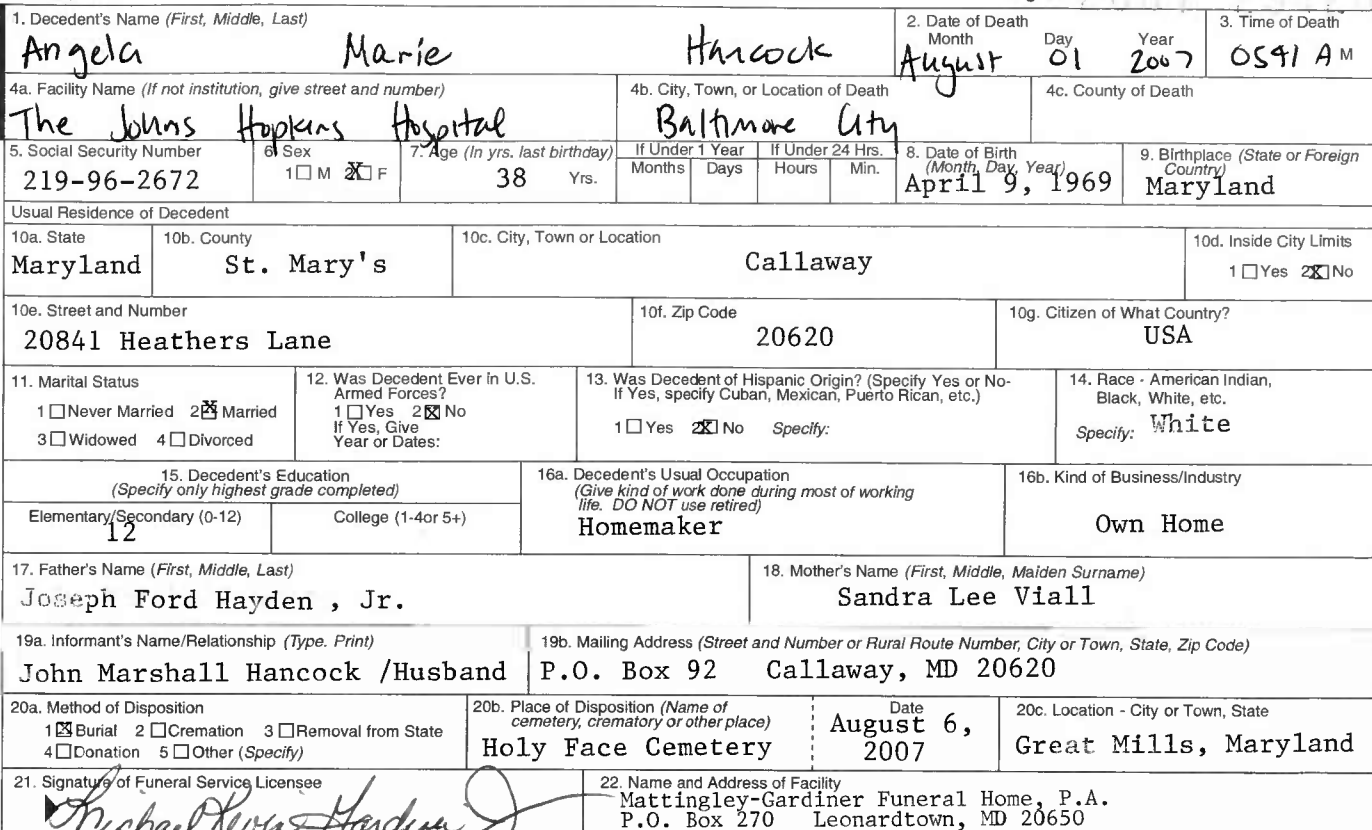 1. Decedent's Name (First, Middle, Last)
Angela Marie Hancock
2. Date of Death
Month Day Year
August 01 2007
3. Time of Death
0541 A M
4a. Facility Name (If not institution, give street and number)
The Johns Hopkins Hospital
4b. City, Town, or Location of Death
Baltimore City
4c. County of Death
5. Social Security Number
219-96-2672
6. Sex
1 ☐ M 2 ☒ F
7. Age (In yrs. last birthday)
38 Yrs.
If Under 1 Year
Months Days
If Under 24 Hrs.
Hours Min.
8. Date of Birth
(Month, Day, Year)
April 9, 1969
9. Birthplace (State or Foreign
Country)
Maryland
Usual Residence of Decedent
10a. State
Maryland
10b. County
St. Mary's
10c. City, Town or Location
Callaway
10d. Inside City Limits
1 ☐ Yes 2 ☒ No
10e. Street and Number
20841 Heathers Lane
10f. Zip Code
20620
10g. Citizen of What Country?
USA
11. Marital Status
1 ☐ Never Married 2 ☒ Married
3 ☐ Widowed 4 ☐ Divorced
12. Was Decedent Ever in U.S.
Armed Forces?
1 ☐ Yes 2 ☒ No
If Yes, Give
Year or Dates:
13. Was Decedent of Hispanic Origin? (Specify Yes or No-
If Yes, specify Cuban, Mexican, Puerto Rican, etc.)
1 ☐ Yes 2 ☒ No Specify:
14. Race - American Indian,
Black, White, etc.
Specify: White
15. Decedent's Education
(Specify only highest grade completed)
Elementary/Secondary (0-12)
12
College (1-4or 5+)
16a. Decedent's Usual Occupation
(Give kind of work done during most of working
life. DO NOT use retired)
Homemaker
16b. Kind of Business/Industry
Own Home
17. Father's Name (First, Middle, Last)
Joseph Ford Hayden , Jr.
18. Mother's Name (First, Middle, Maiden Surname)
Sandra Lee Viall
19a. Informant's Name/Relationship (Type. Print)
John Marshall Hancock /Husband
19b. Mailing Address (Street and Number or Rural Route Number, City or Town, State, Zip Code)
P.O. Box 92 Callaway, MD 20620
20a. Method of Disposition
1 ☒ Burial 2 ☐ Cremation 3 ☐ Removal from State
4 ☐ Donation 5 ☐ Other (Specify)
20b. Place of Disposition (Name of
cemetery, crematory or other place)
Holy Face Cemetery
Date
August 6,
2007
20c. Location - City or Town, State
Great Mills, Maryland
21. Signature of Funeral Service Licensee
Michael Kevin Gardiner
22. Name and Address of Facility
Mattingley-Gardiner Funeral Home, P.A.
P.O. Box 270 Leonardtown, MD 20650